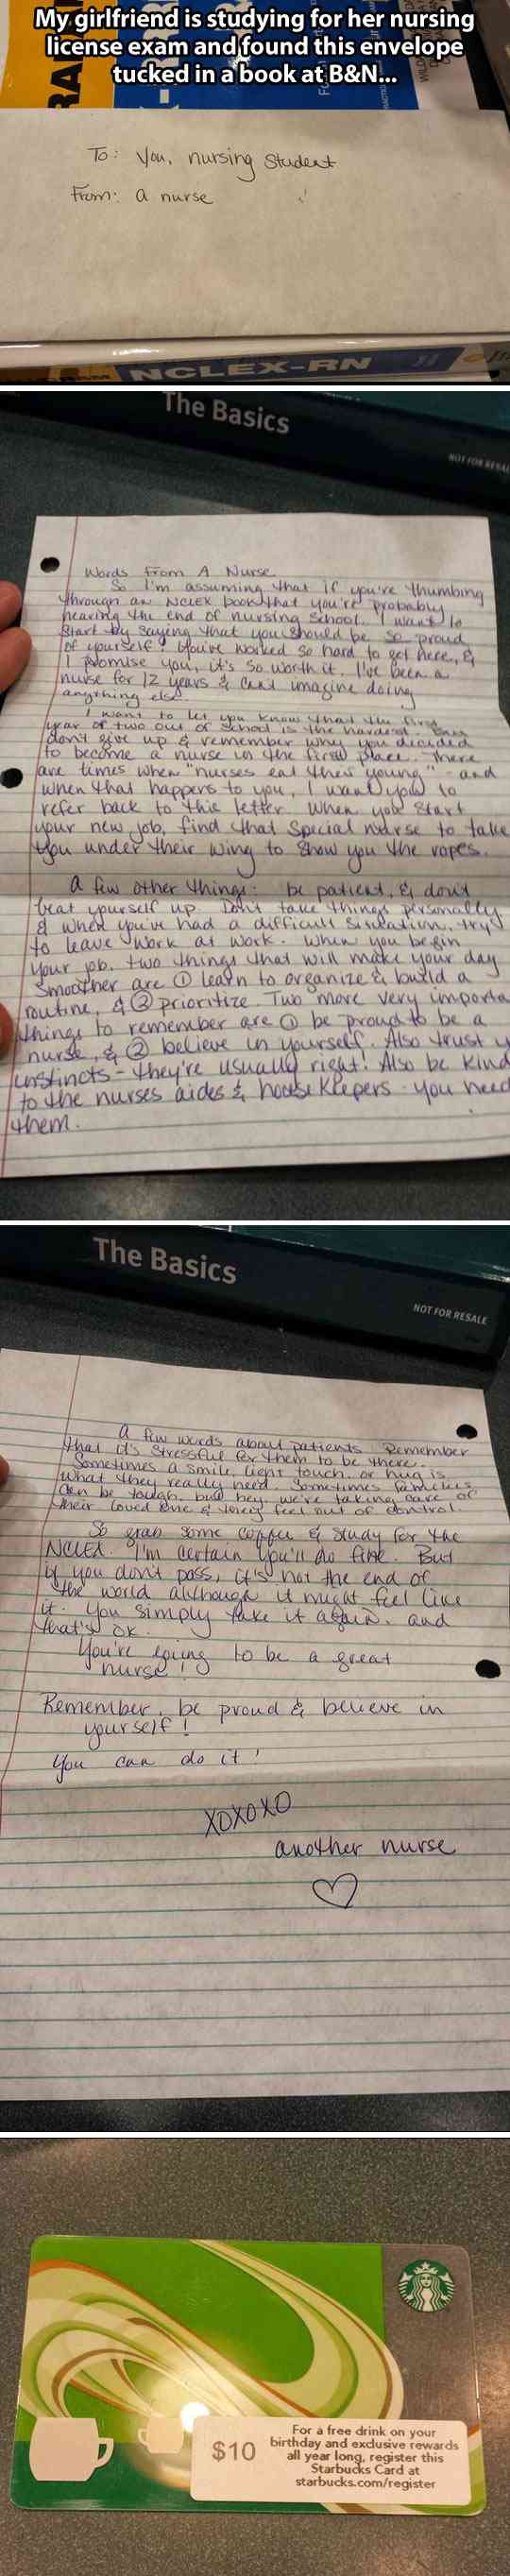 My girlfriend is studying for her nursing
license exam and found this envelope
tucked in a book at B&N...
To: You, nursing student
From: a nurse
NCLEX-RN
The Basics
NOT FOR RESALE
Words From A Nurse
So I'm assuming that if you're thumbing
through an NCLEX book that you're probably
nearing the end of nursing school. I want to
start by saying that you should be so proud
of yourself! You've worked so hard to get here, &
I promise you, it's so worth it. I've been a
nurse for 12 years & can't imagine doing
anything else.
I want to let you know that the first
year or two out of school is the hardest. But
don't give up & remember why you decided
to become a nurse in the first place. There
are times when "nurses eat their young" - and
when that happens to you, I want you to
refer back to this letter. When you start
your new job, find that special nurse to take
you under their wing to show you the ropes.
A few other things: be patient, & don't
beat yourself up. Don't take things personally
& when you've had a difficult situation, try
to leave work at work. When you begin
your job, two things that will make your day
smoother are ① learn to organize & build a
routine, & ② prioritize. Two more very importa
things to remember are ① be proud to be a
nurse, & ② believe in yourself. Also trust y
instincts - they're usually right! Also be kind
to the nurses aides & housekeepers - you need
them.
The Basics
NOT FOR RESALE
A few words about patients. Remember
that it's stressful for them to be there.
Sometimes a smile, light touch, or hug is
what they really need. Sometimes families
can be tough, but hey we're taking care of
their loved one & they feel out of control.
So grab some coffee & study for the
NCLEX. I'm certain you'll do fine. But
if you don't pass, it's not the end of
the world although it might feel like
it. You simply take it again, and
that's OK.
You're going to be a great
nurse!
Remember, be proud & believe in
yourself!
You can do it!
XOXOXO
another nurse
$10
For a free drink on your
birthday and exclusive rewards
all year long, register this
Starbucks Card at
starbucks.com/register